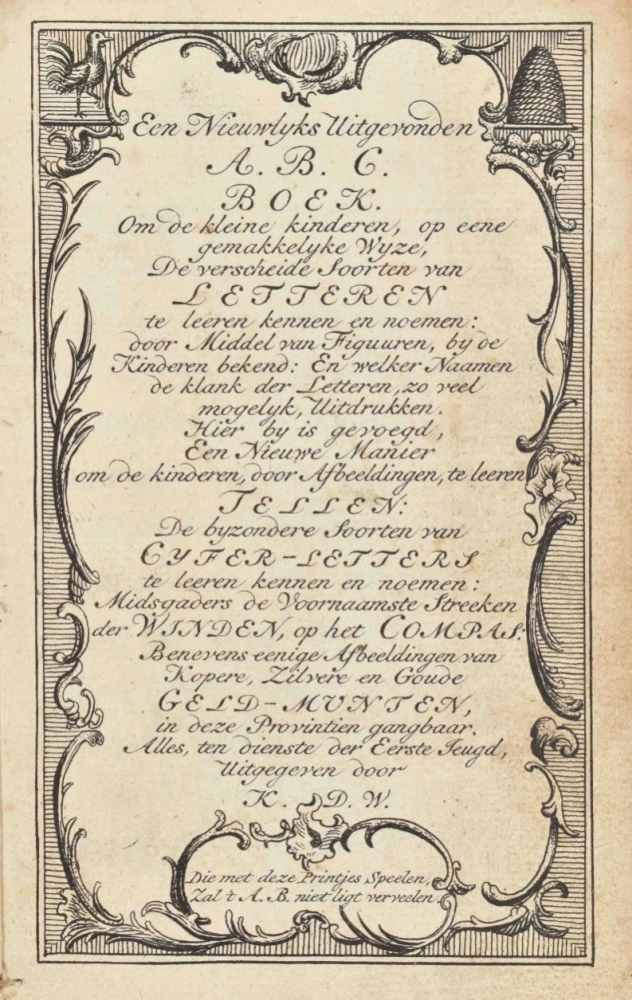 Een Nieuwlyks Uitgevonden
A. B. C.
BOEK.
Om de kleine kinderen, op eene
gemakkelyke Wyze,
De verscheide Soorten van
LETTEREN
te leeren kennen en noemen:
door Middel van Figuuren, by de
Kinderen bekend: En welker Naamen
de klank der Letteren, zo veel
mogelyk, Uitdrukken.
Hier by is gevoegd,
Een Nieuwe Manier
om de kinderen, door Afbeeldingen, te leeren
TELLEN:
De byzondere Soorten van
CYFER-LETTERS
te leeren kennen en noemen:
Midsgaders de Voornaamste Streeken
der WINDEN, op het COMPAS:
Benevens eenige Afbeeldingen van
Kopere, Zilvere en Goude
GELD-MUNTEN,
in deze Provintien gangbaar.
Alles, ten dienste der Eerste Jeugd,
Uitgegeven door
K. D. W.
Die met deze Printjes Speelen,
Zal 't A. B. niet ligt verveelen.